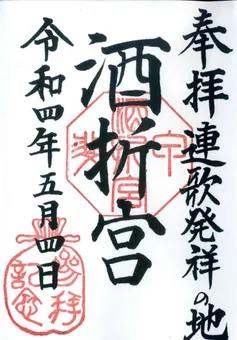 奉拝 連歌発祥の地
酒折宮
令和四年五月四日
参拝記念